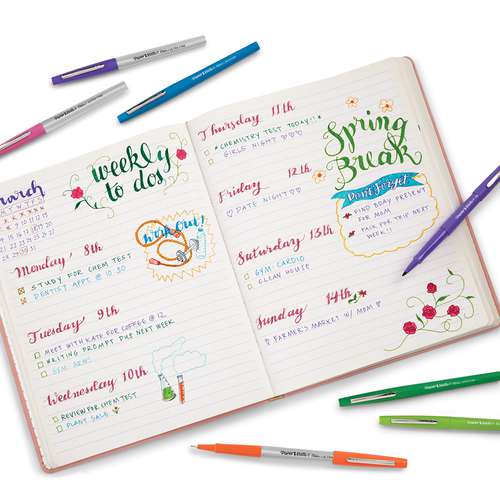 weekly
to dos
march
Monday 8th
STUDY FOR CHEM TEST
DENTIST APPT @ 10:30
Work Out!
Tuesday 9th
MEET WITH KATE FOR COFFEE @ 12
WRITING PROMPT DUE NEXT WEEK
GYM: ARMS
Wednesday 10th
REVIEW FOR CHEM TEST
PLANT SALE
Thursday 11th
CHEMISTRY TEST TODAY!!
GIRLS NIGHT
Friday 12th
DATE NIGHT
Saturday 13th
GYM-CARDIO
CLEAN HOUSE
Sunday 14th
FARMER'S MARKET W/ MOM
Spring
Break
Don't Forget
FIND BDAY PRESENT
FOR MOM
PACK FOR TRIP NEXT
WEEK!!
Paper Mate
Paper Mate
Paper Mate
Paper Mate
Paper Mate
Paper Mate